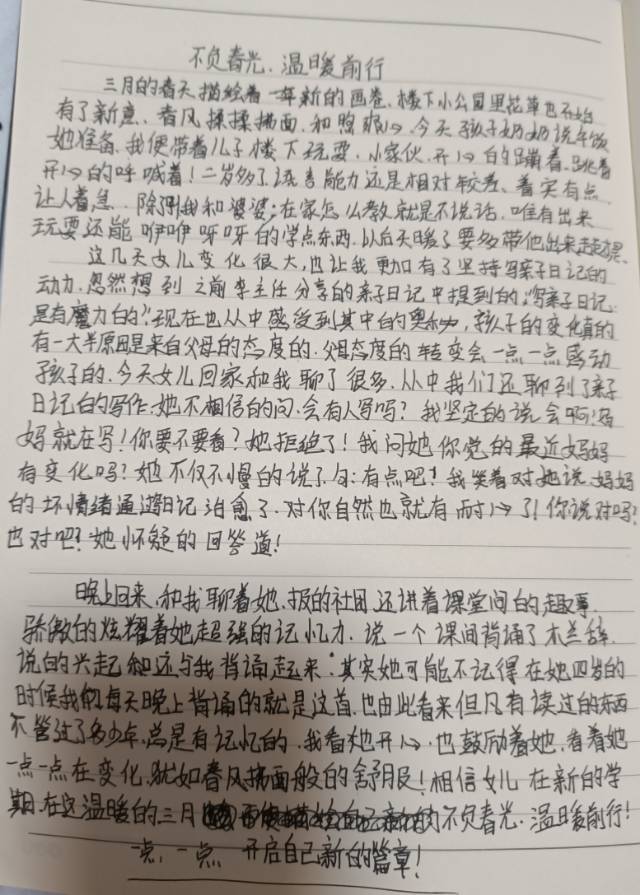 不负春光.温暖前行
三月的春天描绘着一年新的画卷、楼下小公园里花草也开始
有了新意、春风揉揉拂面、和煦 今天孩子奶奶说午饭
她准备、我便带着儿子楼下玩耍.小家伙.开心的蹦着、跳着
开心的呼喊着!二岁多了语言能力还是相对较差、着实有点
让人着急. 除了跟我和婆婆;在家怎么教就是不说话.唯有出来
玩耍还能咿咿呀呀的学点东西.以后天暖了要多带他出来走走
这几天女儿变化很大,也让我更加有了坚持写亲子日记的
动力.忽然想到之前李主任分享的亲子日记中提到的;"写亲子日记
是有魔力的"现在也从中感受到其中的奥秘,孩子的变化真的
有一大半原因是来自父母的态度的.父母态度的转变会一点一点感动
孩子的.今天女儿回家和我聊了很多.从中我们还聊到了亲子
日记的写作.她不相信的问.会有人写吗?我坚定的说会啊!妈
妈就在写!你要不要看?她拒绝了!我问她你觉的最近妈妈
有变化吗?她不仅不慢的说了句:有点吧!我笑着对她说.妈妈
的坏情绪通过日记治愈了.对你自然也就有耐心了!你说对吗?
也对吧!她怀疑的回答道!
晚上回来、和我聊着她.报的社团.还讲着课堂间的趣事.
骄傲的炫耀着她超强的记忆力.说一个课间背诵了木兰辞.
说的兴起 还与我背诵起来.其实她可能不记得在她四岁的
时候我们每天晚上背诵的就是这首.也由此看来但凡有读过的东西
不管过了多少年.总是有记忆的.我看她开心.也鼓励着她.看着她
一点一点在变化.犹如春风拂面般的舒服!相信女儿在新的学
期.在这温暖的三月 不负春光.温暖前行!
一点,一点 开启自己新的篇章!